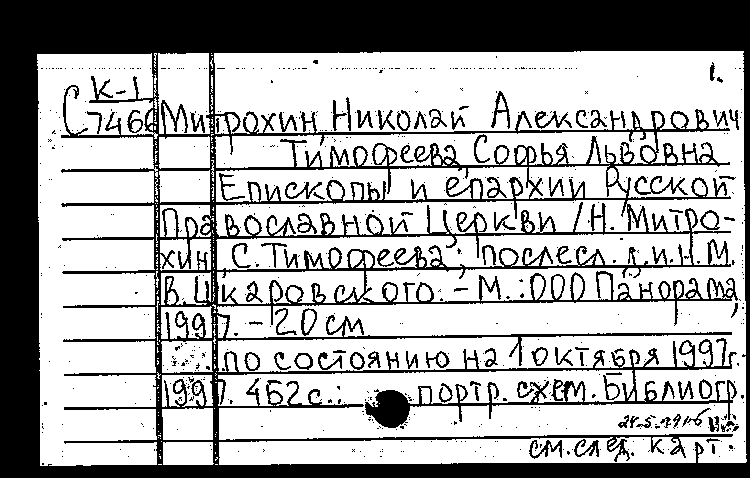 1.
К-1
С 7466 Митрохин, Николай Александрович
Тимофеева, Софья Львовна
Епископы и епархии Русской
Православной Церкви / Н. Митро-
хин, С. Тимофеева; послесл. д.и.н. М.
В. Шкаровского. - М.: ООО Панорама,
1997. - 20 см
по состоянию на 1 октября 1997г.
1997. 462 с.: портр. схем. Библиогр.
см. след. карт.